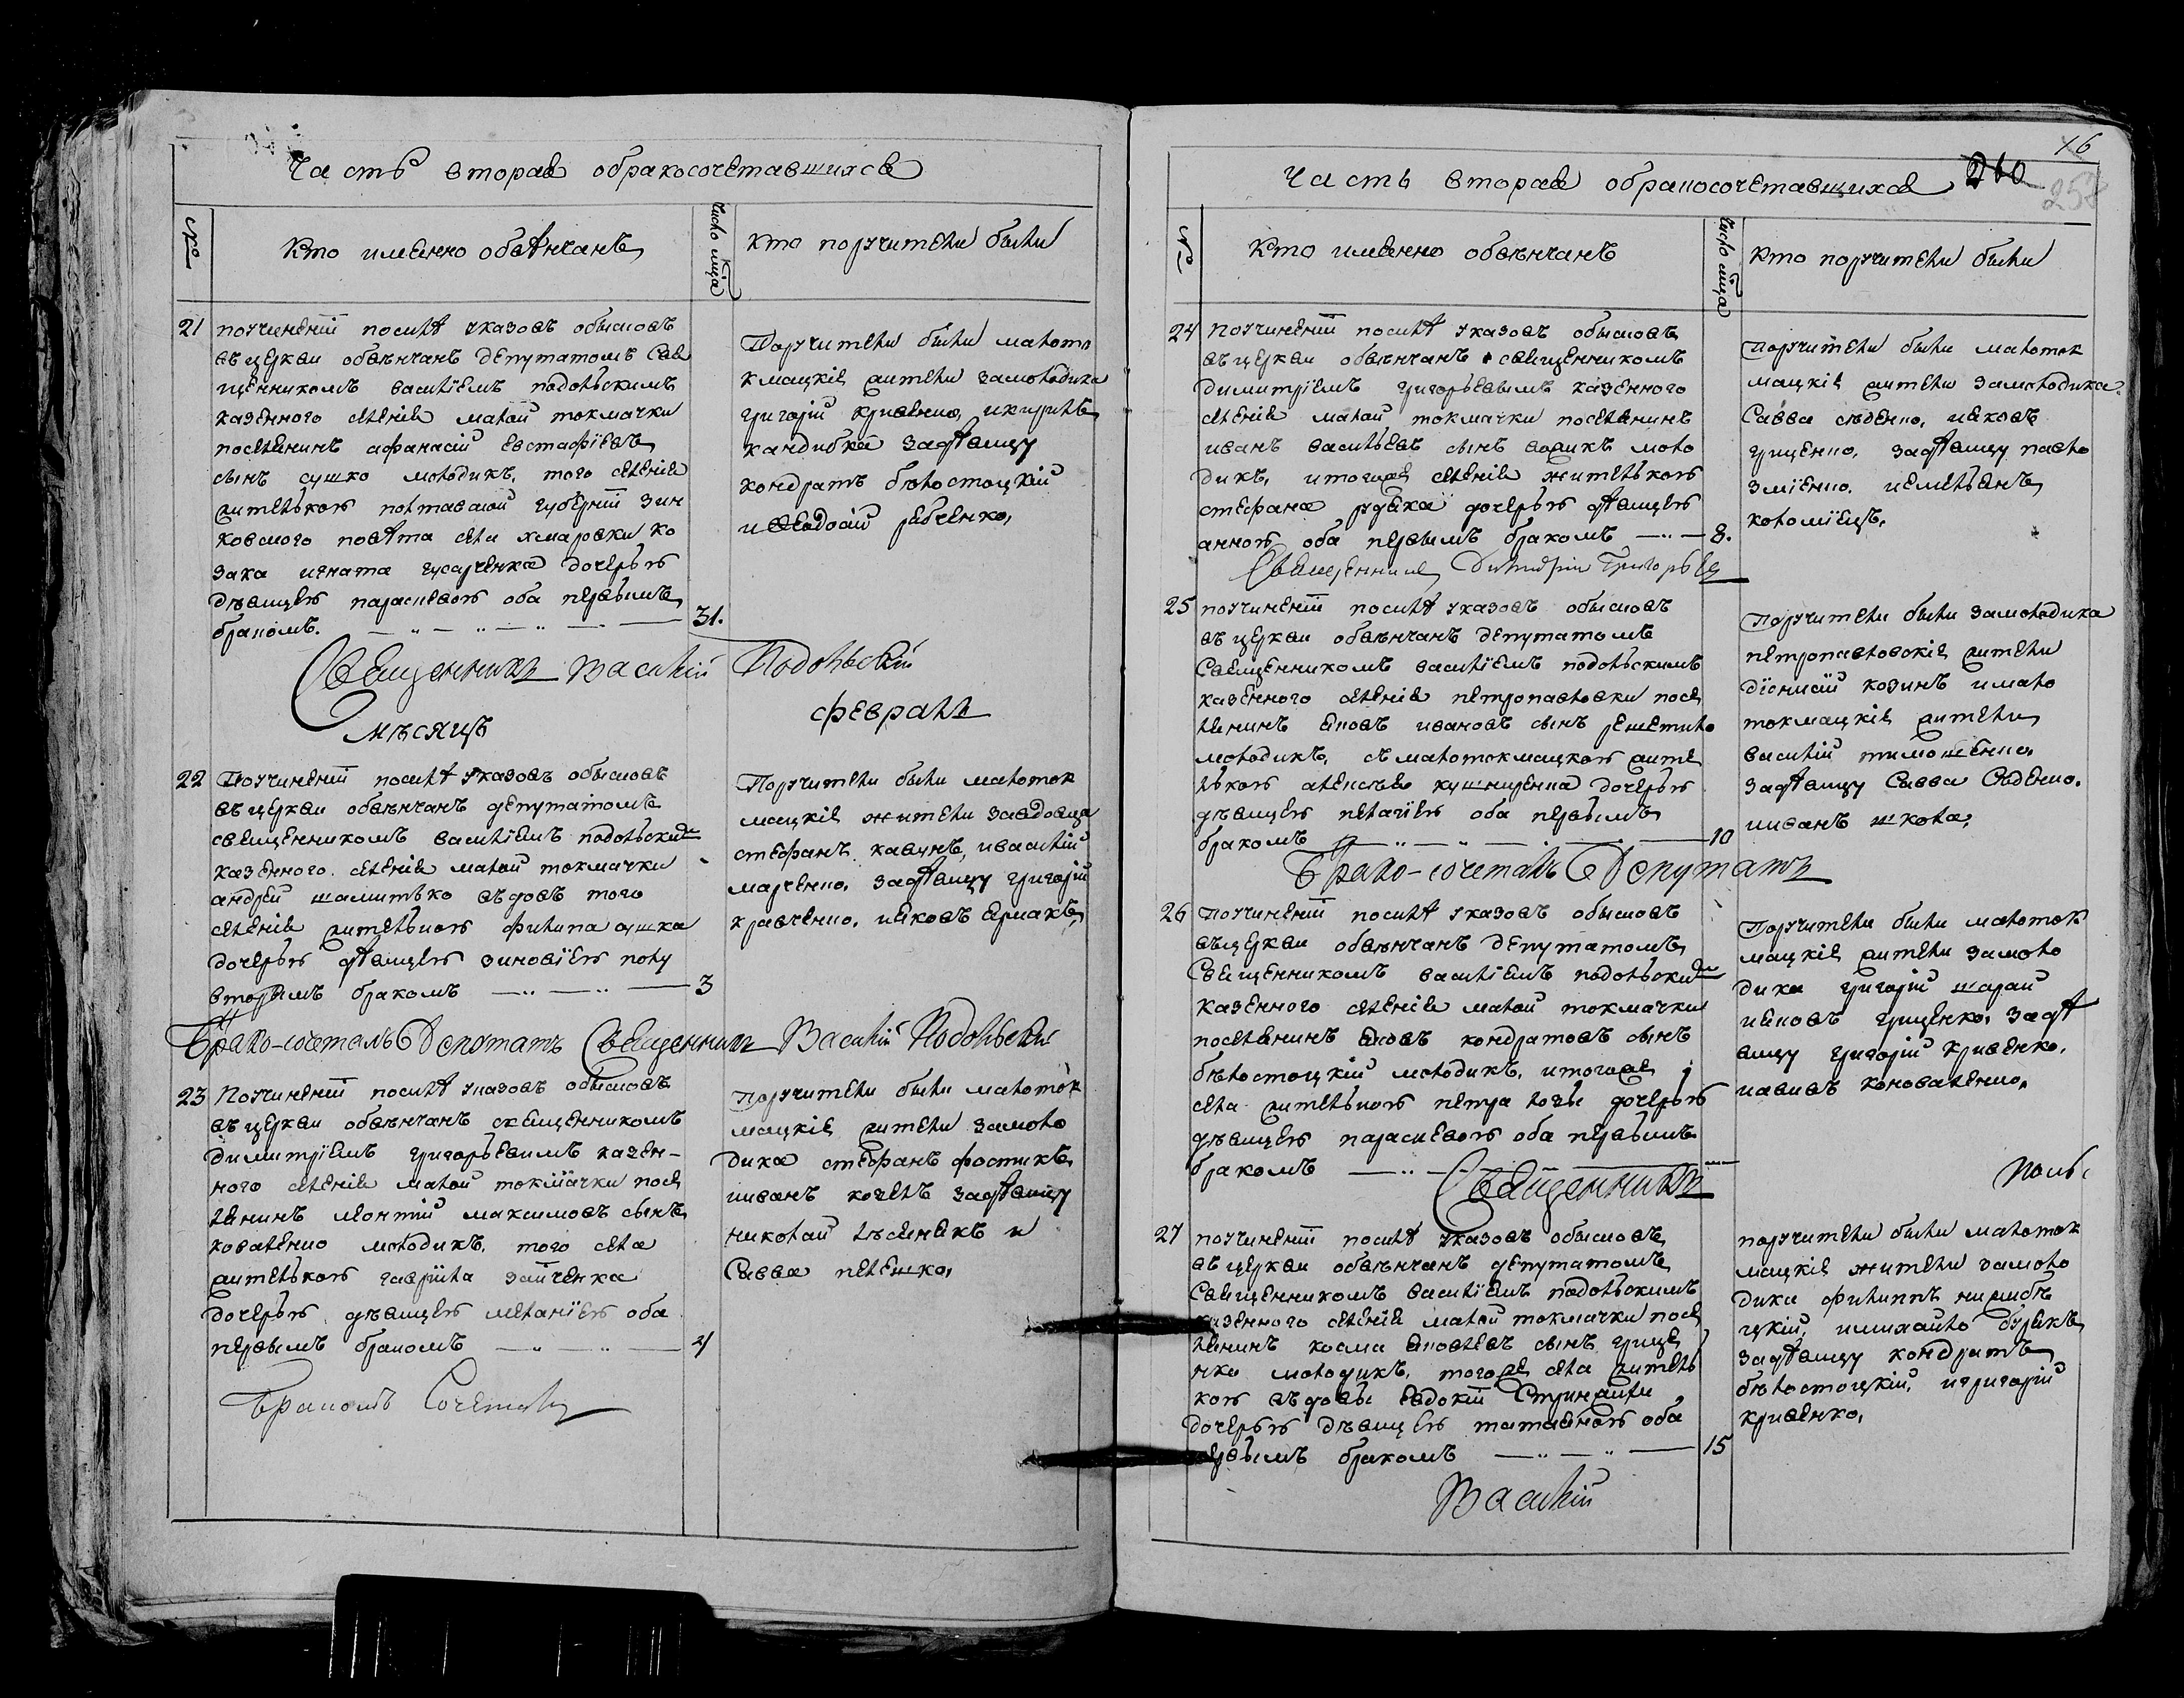 Часть вторая обракосочетавшихся
№
Кто именно обвѣнчанъ
число мца
Кто поручители были
21
поучиненіи посилѣ указовъ обысковъ
въ церкви обвѣнчанъ депутатомъ свя
щенникомъ василіемъ подольскимъ
казенного селенія малой токмачки
поселянинъ афанасій евстафіевъ
сынъ сушко молодикъ, того селенія
жителькою полтавской губерніи зин
ковского повѣта села хмаровки ко
зака игната гусарченка дочерью
дѣвицею параскевою оба первымъ
бракомъ.
31.
Поручители были малото
кмацкіе жители замолодика
григорій кривенко, икирило
кандибка задѣвицу
кондратъ бѣлостоцкій
иѳеодосій рябченко,
Священникъ Василій Подольскій
мѣсяцъ февраль
22
Поучиненіи посилѣ указовъ обысковъ
въ церкви обвѣнчанъ депутатомъ
священникомъ василіемъ подольским
казенного селенія малой токмачки
андрей шалитько вдовъ того
селенія жителькою филипа
дочерью дѣвицею зиновіею полу
вторымъ бракомъ
3
Поручители были малоток
мацкіе жители завдовца
стефанъ кавунъ, ивасилій
марченко, задѣвицу григорій
кравченко, ияковъ ермакъ,
Брако-сочеталъ Депутатъ Священникъ Василій Подольскій
23
Поучиненіи посилѣ указовъ обысковъ
въ церкви обвѣнчанъ священникомъ
димитріемъ григорьевимъ казен-
ного селенія малой токмачки посе
лянинъ леонтій максимовъ сынъ
коваленко молодикъ, того села
жителькою гавріила зайченка
дочерью дѣвицею меланіею оба
первымъ бракомъ
4
Поручители были малоток
мацкіе жители замоло
дика стефанъ фостикъ,
ииванъ козелъ задѣвицу
николай лѣсникъ и
Савва пелешко,
Бракомъ Сочеталъ
16
260
258
Часть вторая обракосочетавшихся
№
Кто именно обвѣнчанъ
число мца
Кто поручители были
24
Поучиненіи посилѣ указовъ обысковъ
въ церкви обвѣнчанъ священникомъ
димитріемъ григорьевымъ казенного
селенія малой токмачки поселянинъ
иванъ васильевъ сынъ вовикъ моло
дикъ, итогоже селенія жителькою
стефана рудька дочерью дѣвицею
анною оба первымъ бракомъ
8.
Поручители были малоток
мацкіе жители замолодика
Савва слѣденко, ияковъ
грищенко, задѣвицу павло
зміенко, иемельянъ
коломіецъ,
Священникъ Димитрій Григорьевъ
25
поучиненіи посилѣ указовъ обысковъ
въ церкви обвѣнчанъ депутатомъ
Священникомъ василіемъ подольскимъ
казенного селенія петропавловки посе
лянинъ яковъ ивановъ сынъ решетило
молодикъ, съмалотокмацкою жите
лькою алексѣя кушниренка дочерью
дѣвицею пелагіею оба первымъ
бракомъ
10
Поручители были замолодика
петропавловскіе жители
діонисій козинъ имало
токмацкіе жители
василій тимошенко,
задѣвицу Савва Слѣденко,
ииванъ школа,
Брако-сочеталъ Депутатъ
26
Поучиненіи посилѣ указовъ обысковъ
въцеркви обвѣнчанъ депутатомъ
Священникомъ василіемъ подольским
казенного селенія малой токмачки
поселянинъ яковъ кондратовъ сынъ
бѣлостоцкій молодикъ, итогоже
села жителькою петра лози дочерью
дѣвицею параскевою оба первымъ
бракомъ
Поручители были малоток
мацкіе жители замоло
дика григорій шарай
ияковъ грищенко, задѣ
вицу григорій кривенко,
иавивъ коноваленко,
Священникъ
Поль
27
поучиненіи посилѣ указовъ обысковъ
въ церкви обвѣнчанъ депутатомъ
Священникомъ василіемъ подольскимъ
казенного селенія малой токмачки посе
лянинъ косма яковлевъ сынъ грище
нко молодикъ, тогоже села житель
кою вдовы евдокіи
дочерью дѣвицею татьяною оба
первымъ бракомъ
15
поручители были малоток
мацкіе жители замоло
дика филиппъ
имихайло бурякъ
задѣвицу кондратъ
бѣлостоцкій, игригорій
кривенко,
Василій